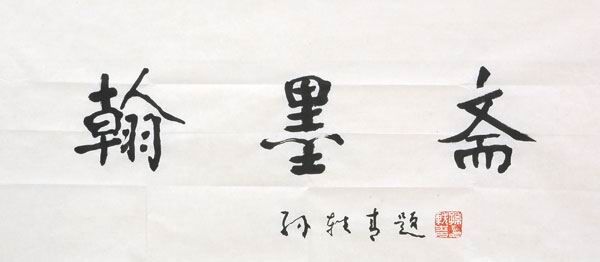 翰墨斋
孙轶青题